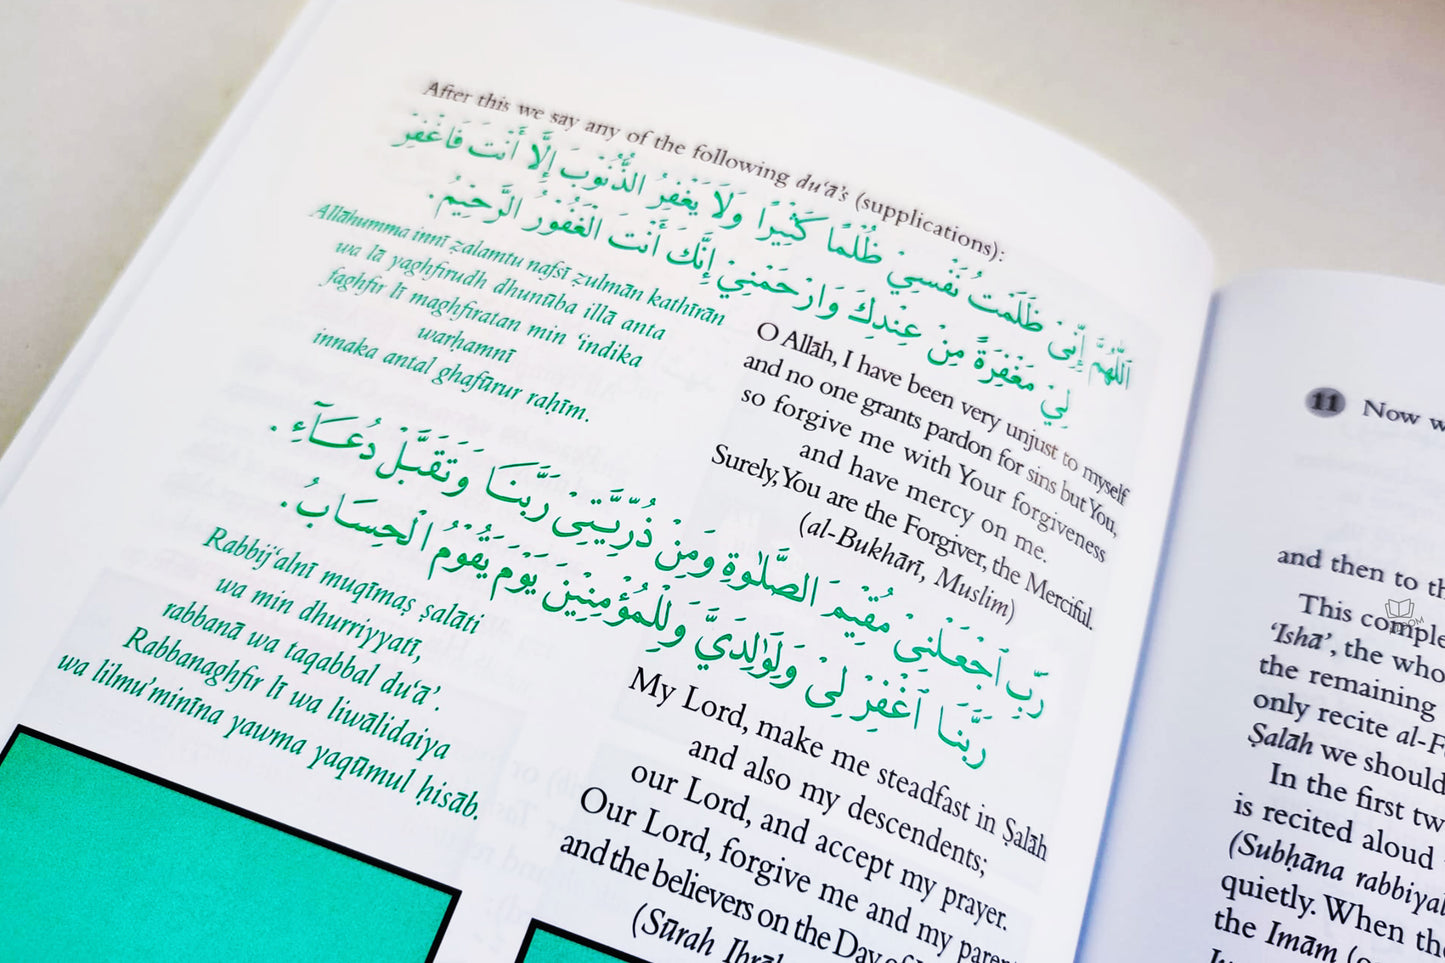 After this we say any of the following du‘ā’s (supplications):
اَللّٰهُمَّ إِنِّىْ ظَلَمْتُ نَفْسِىْ ظُلْمًا كَثِيْرًا وَلَا يَغْفِرُ الذُّنُوْبَ إِلَّا أَنْتَ فَاغْفِرْ
لِىْ مَغْفِرَةً مِنْ عِنْدِكَ وَارْحَمْنِىْ إِنَّكَ أَنْتَ الْغَفُوْرُ الرَّحِيْمُ .
Allāhumma innī ẓalamtu nafsī ẓulmān kathīrān
wa lā yaghfirudh dhunūba illā anta
faghfir lī maghfiratan min ‘indika
warḥamnī
innaka antal ghafūrur raḥīm.
O Allāh, I have been very unjust to myself
and no one grants pardon for sins but You,
so forgive me with Your forgiveness
and have mercy on me.
Surely, You are the Forgiver, the Merciful.
(al-Bukhārī, Muslim)
رَبِّ ٱجْعَلْنِىْ مُقِيْمَ الصَّلٰوةِ وَمِنْ ذُرِّيَّتِىْ رَبَّنَا وَتَقَبَّلْ دُعَآءِ .
رَبَّنَا ٱغْفِرْ لِىْ وَلِوَٰلِدَىَّ وَلِلْمُؤْمِنِيْنَ يَوْمَ يَقُوْمُ الْحِسَابُ .
Rabbij‘alnī muqīmaṣ ṣalāti
wa min dhurriyyatī,
rabbanā wa taqabbal du‘ā’.
Rabbanaghfir lī wa liwālidaiya
wa lilmu’minīna yawma yaqūmul ḥisāb.
My Lord, make me steadfast in Ṣalāh
and also my descendents;
our Lord, and accept my prayer.
Our Lord, forgive me and my
and the believers on the Day
(Sūrah
11 Now
and then to
This
‘Ishā’, the
the remaining
only recite
Ṣalāh we should
In the first
is recited aloud
(Subḥāna
quietly. When
the Imām